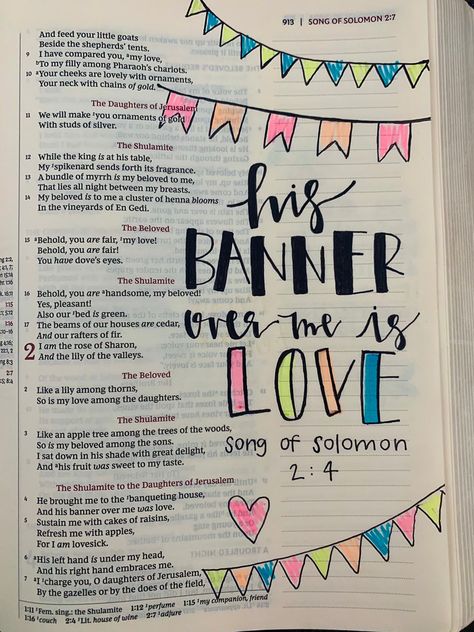 913 | SONG OF SOLOMON 2:7
And feed your little goats
Beside the shepherds' tents.
9 I have compared you, my love,
To my filly among Pharaoh's chariots.
10 Your cheeks are lovely with ornaments,
Your neck with chains of gold.
The Daughters of Jerusalem
11 We will make you ornaments of gold
With studs of silver.
The Shulamite
12 While the king is at his table,
My spikenard sends forth its fragrance.
13 A bundle of myrrh is my beloved to me,
That lies all night between my breasts.
14 My beloved is to me a cluster of henna blooms
In the vineyards of En Gedi.
The Beloved
15 Behold, you are fair, my love!
Behold, you are fair!
You have dove's eyes.
The Shulamite
16 Behold, you are handsome, my beloved!
Yes, pleasant!
Also our bed is green.
17 The beams of our houses are cedar,
And our rafters of fir.
2 I am the rose of Sharon,
And the lily of the valleys.
The Beloved
2 Like a lily among thorns,
So is my love among the daughters.
The Shulamite
3 Like an apple tree among the trees of the woods,
So is my beloved among the sons.
I sat down in his shade with great delight,
And his fruit was sweet to my taste.
The Shulamite to the Daughters of Jerusalem
4 He brought me to the banqueting house,
And his banner over me was love.
5 Sustain me with cakes of raisins,
Refresh me with apples,
For I am lovesick.
6 His left hand is under my head,
And his right hand embraces me.
7 I charge you, O daughters of Jerusalem,
By the gazelles or by the does of the field,
1:11 Fem. sing.: the Shulamite 1:12 perfume 1:15 my companion, friend
1:16 couch 2:4 Lit. house of wine 2:7 adjure
his
BANNER
over me is
LOVE
song of solomon
2:4